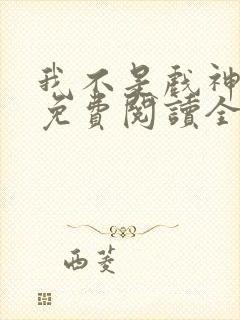 我不是戲神
免費閱讀全
西菱